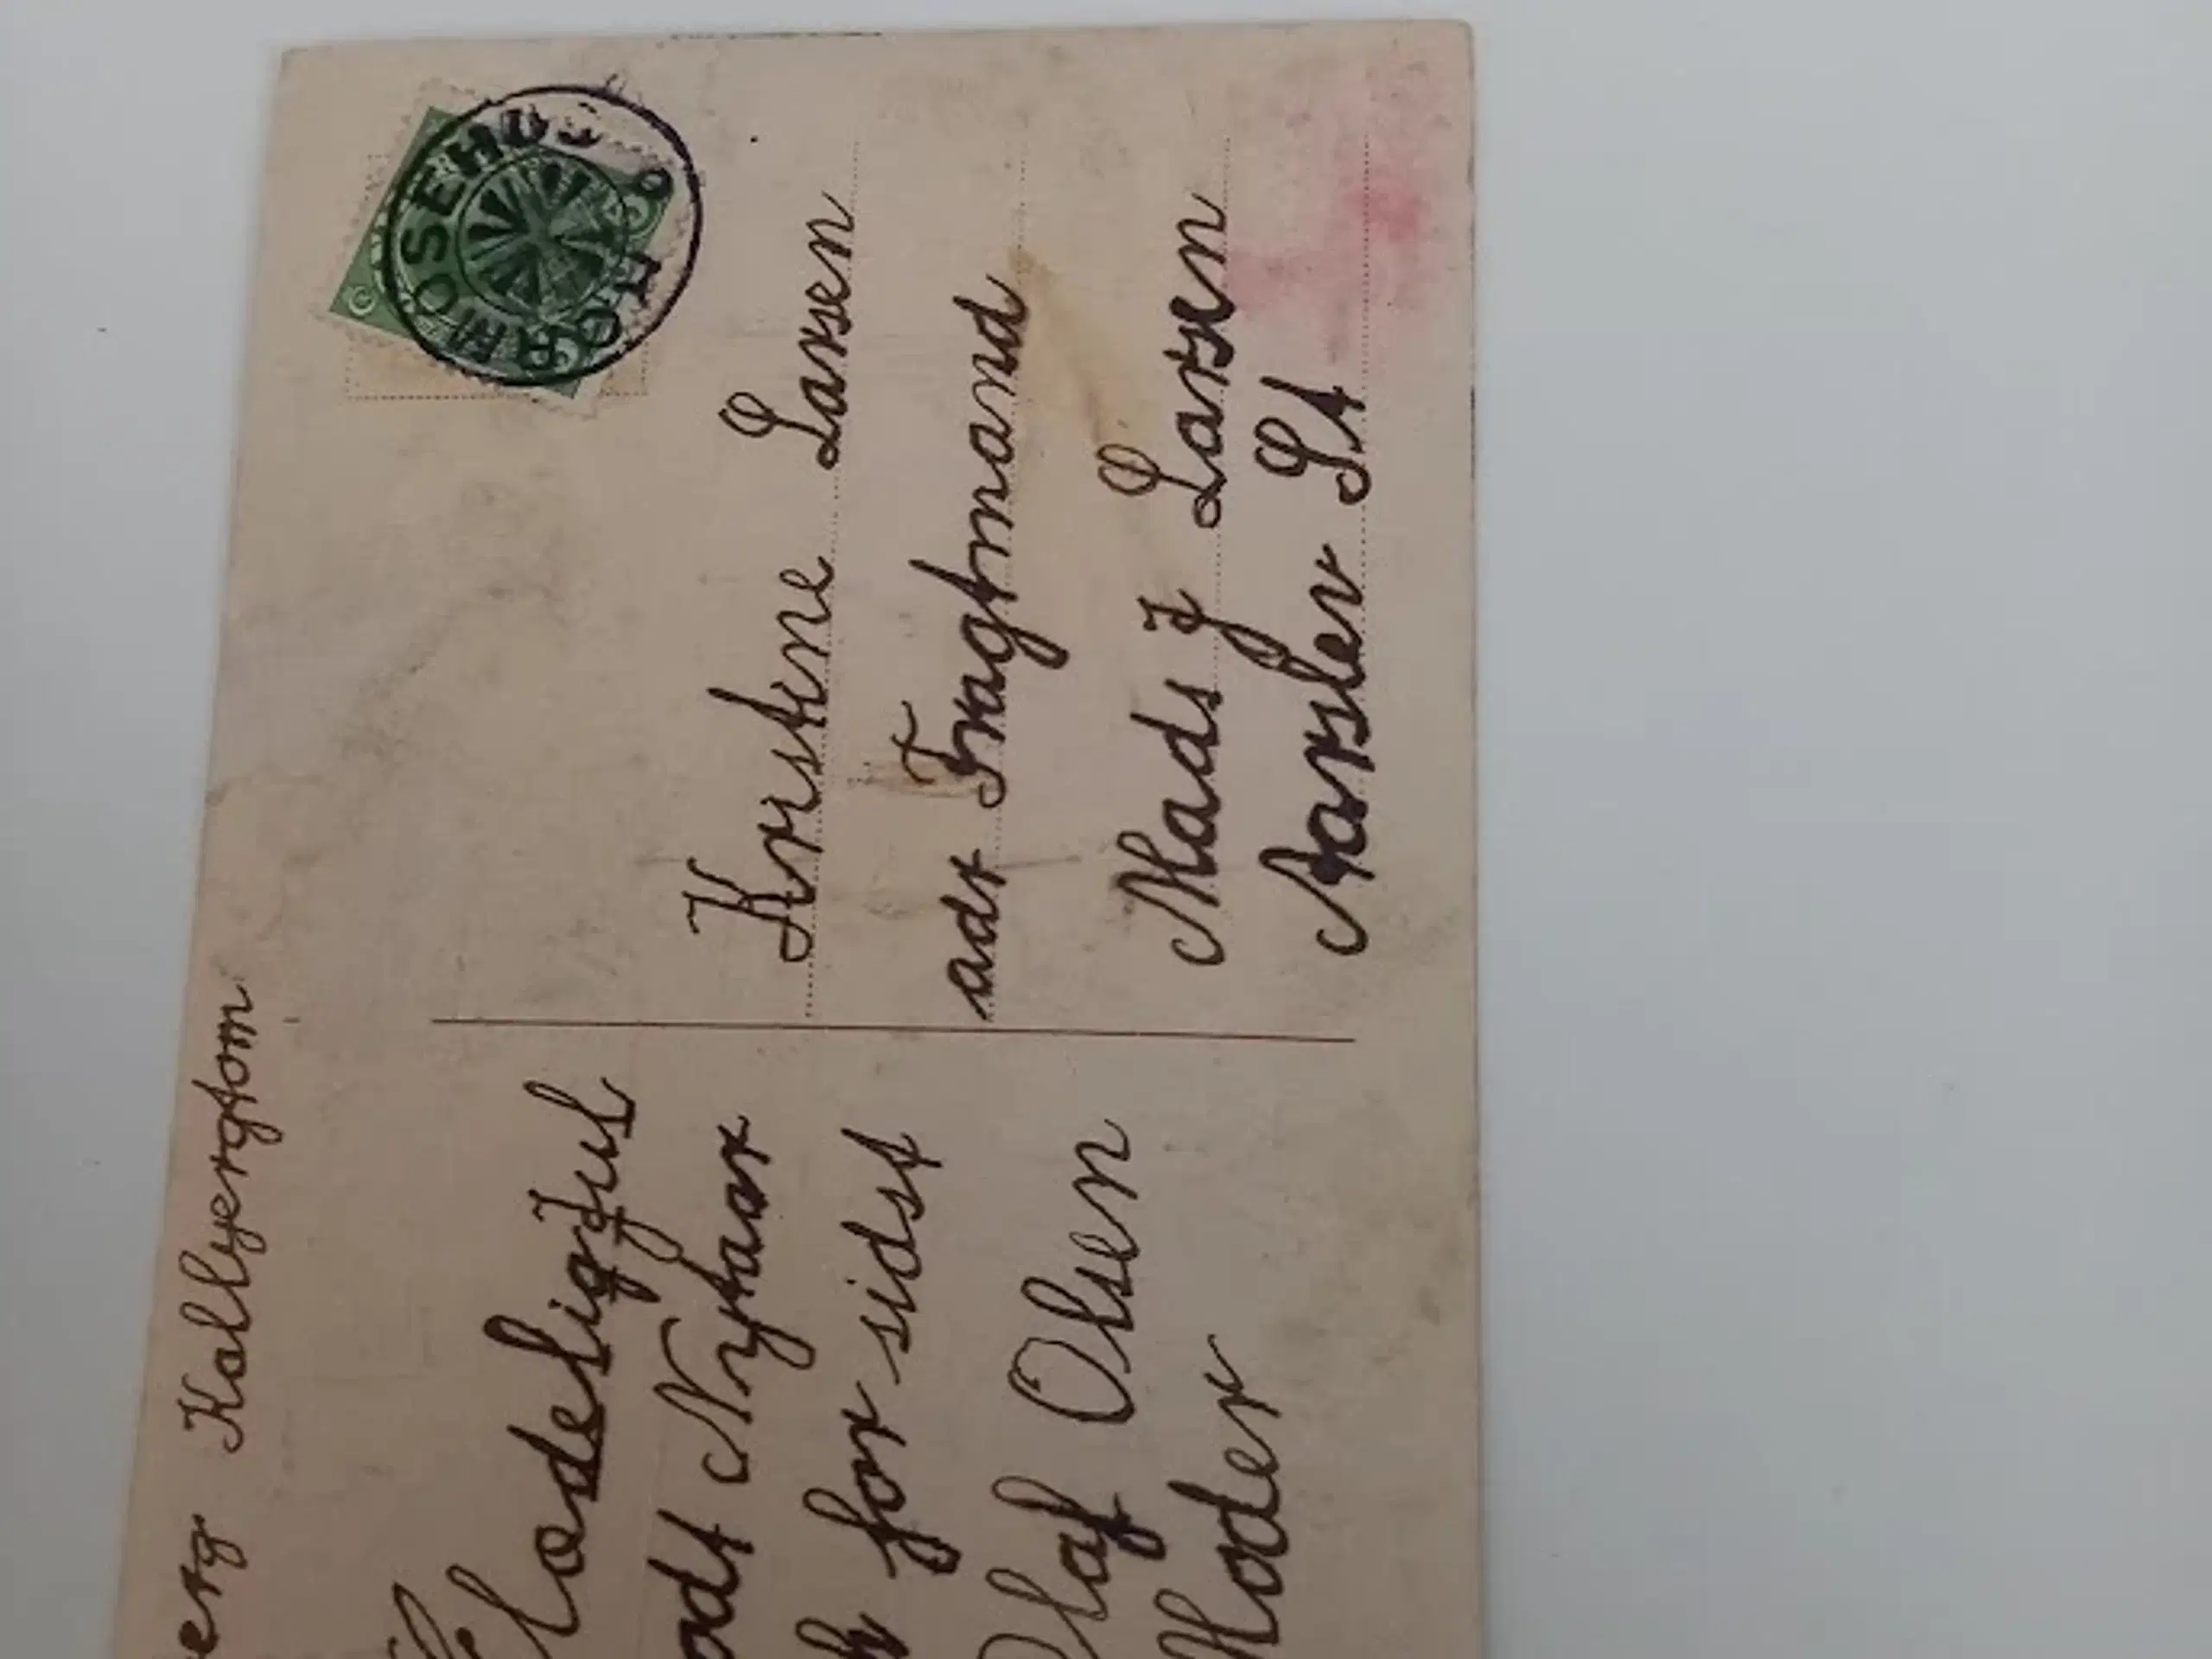 KORNMOSEHUS
Kristine Larsen
adr Fragtmand
Mads J Larsen
Aarslev St
Kallyergtom
Glædelig Jul
Nytaar
for sidst
Olaf Olsen
Moder